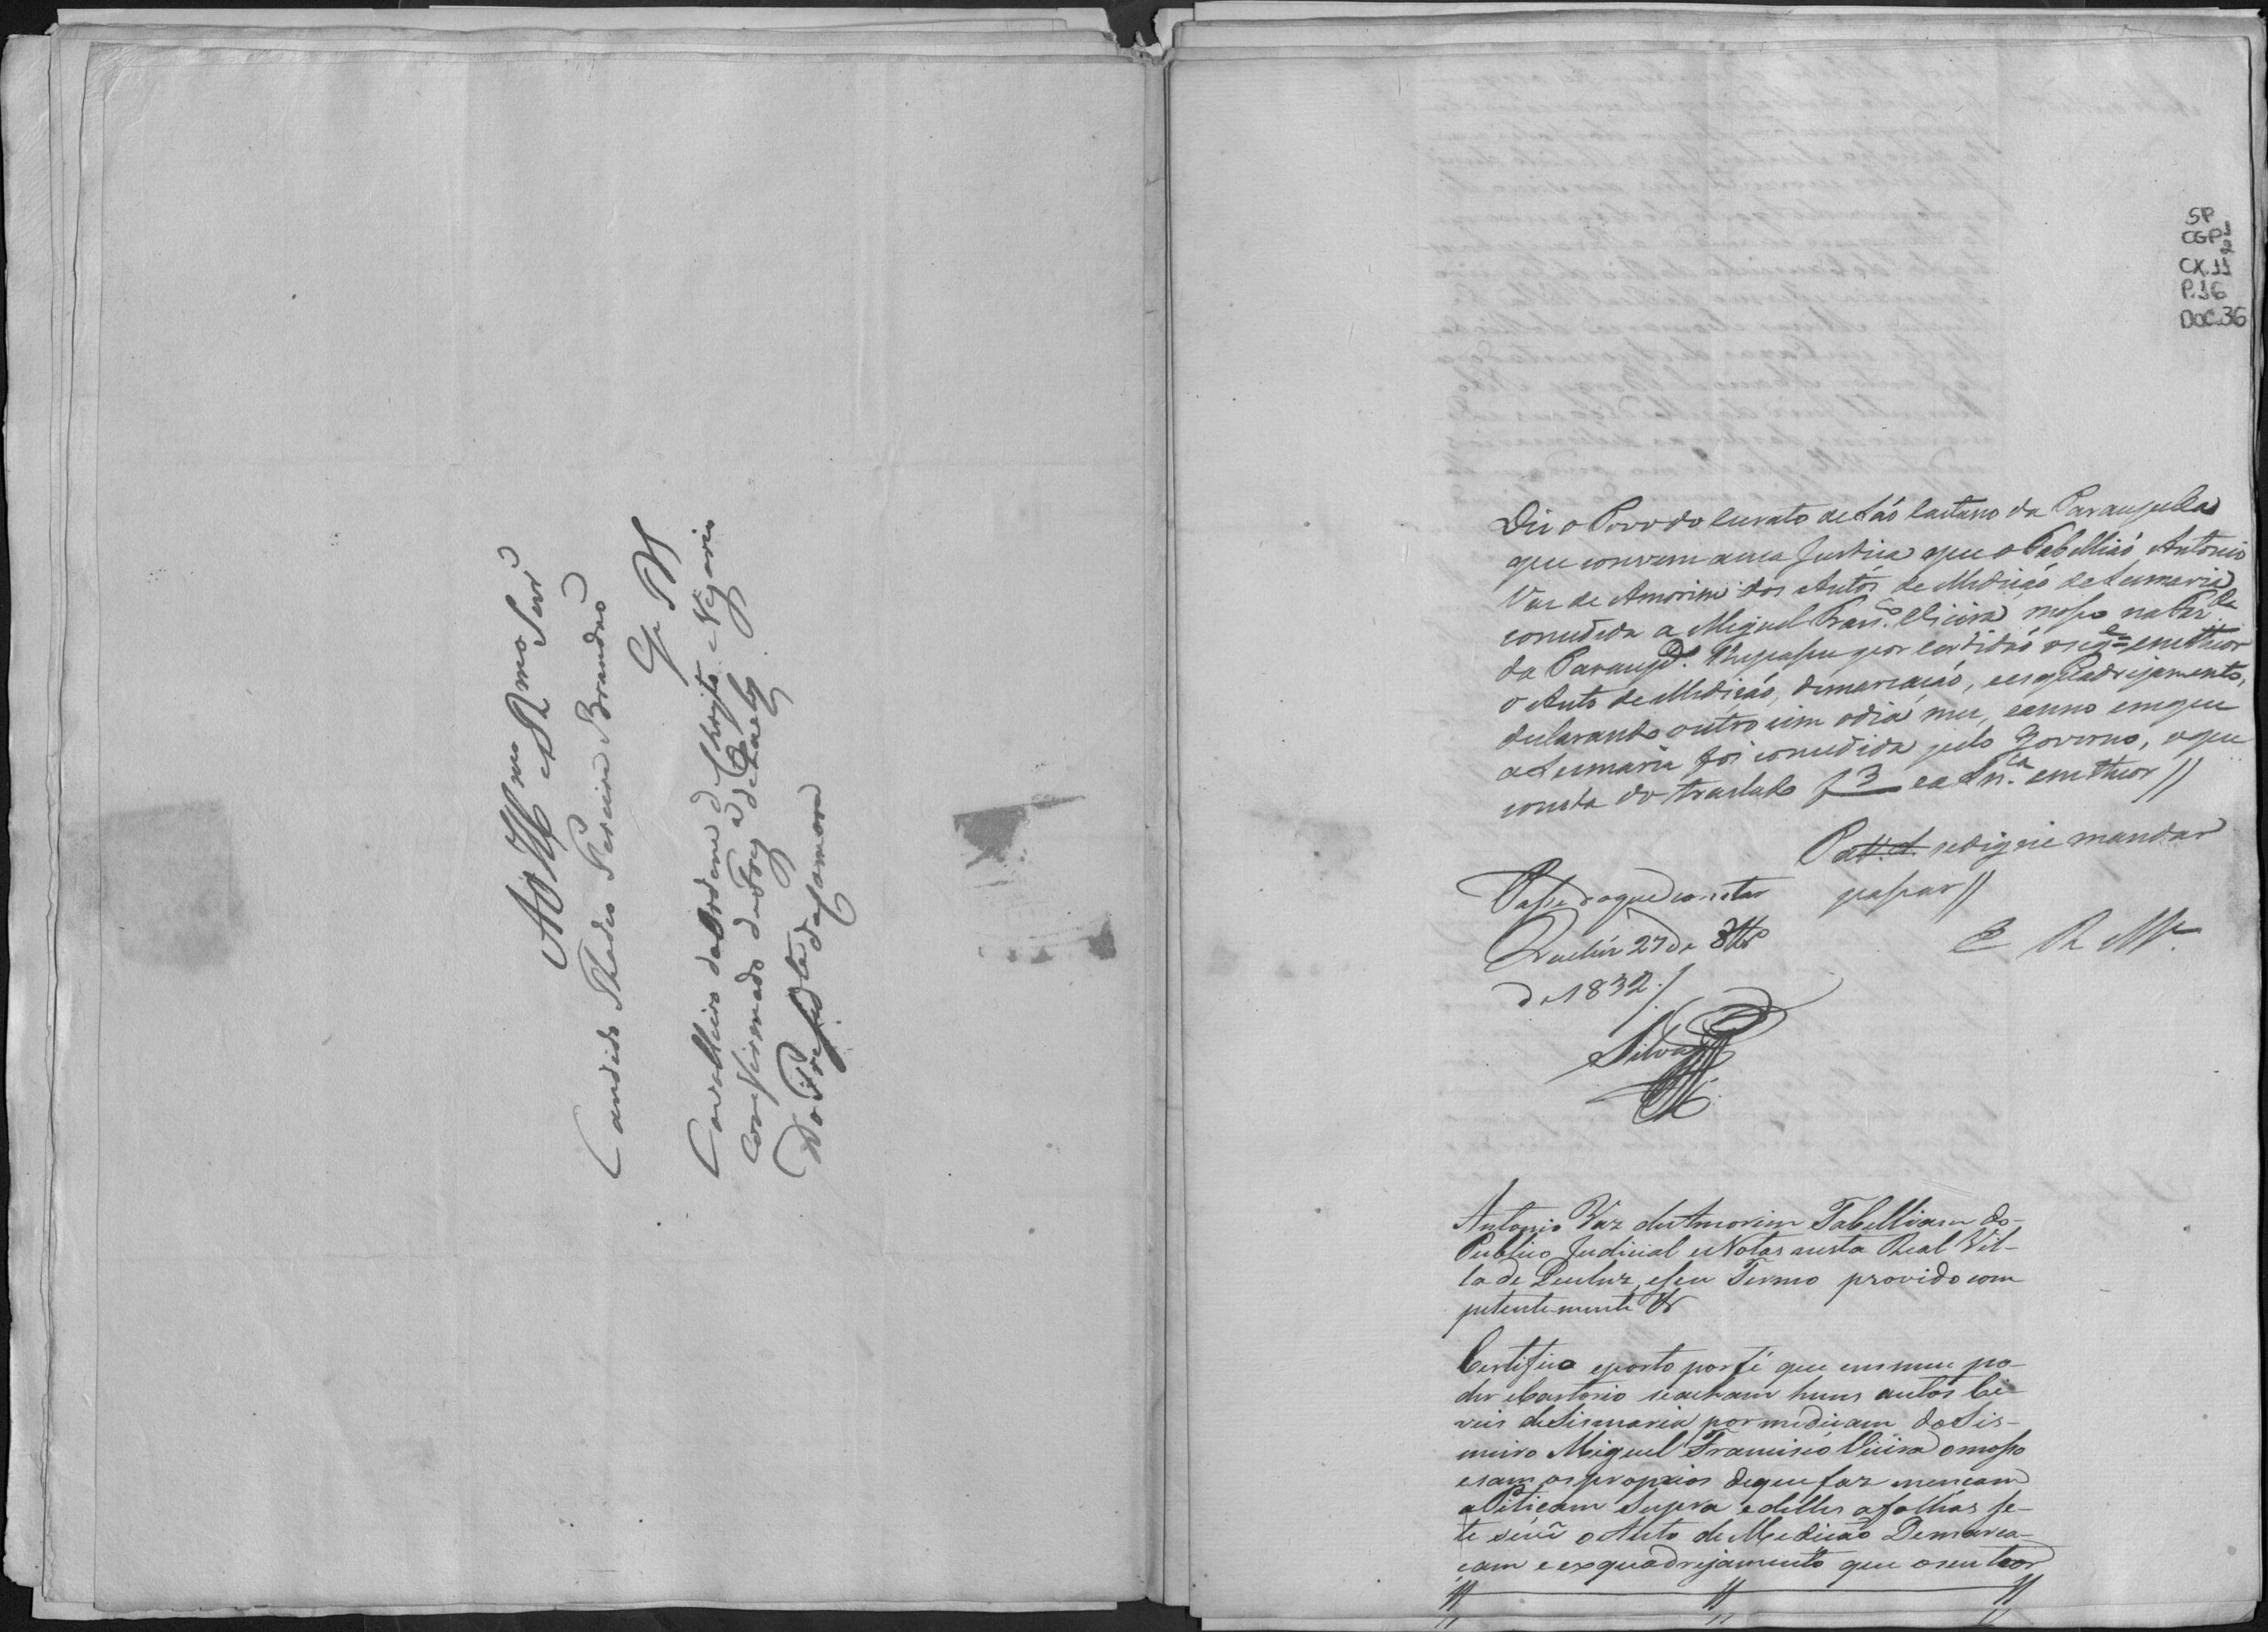 Ao Illmo e Rmo Snr
Candido Thadeo Pereira Brandão
G. M.
Cavalheiro da Ordem de Christo e Vigario
da
Do Prezidte da Camara
SP
CGP
CX.11
P.36
DOC.36
Diz o Povo do Curato de Sáo Caetano da Paraupeba
que convem a sua Justica que o Tabelliáo Antonio
Vaz de Amorim dos Autos de Medicáo de Sesmaria
concedida a Miguel Franco. Vieira mosso na Par
da Paraupa. lhe passe por certidáo o sege. em theor
o Auto de Medicáo, demarcacáo, e esquadrejamento,
declarando outro sim o dia mez, e anno em que
a Sesmaria foi concedida pelo Governo, o que
consta do traslado f 3 e a Sn.ca em theor //
P a V. S. se digne mandar
passar //
E R Me.
Passe do que constar
Queluz 27 de 8bro
de 1832 /
Silva
Antonio Vaz de Amorim Tabelliam do
Publico Judicial e Notas nesta Real Vil-
la de Queluz, e seu Termo provido com
petentemente &
Certifico e porto por fé que em meu po-
der e Cartorio se acham huns autos Ci-
veis de Sismaria por medicam do Sis-
meiro Miguel Francisco Vieira o mosso
e sam os proprios de que faz mencam
a Peticam Supra e delles a folhas se-
te o Auto de Medicáo Demarca-
cam e exquadrejamento que o seu teor